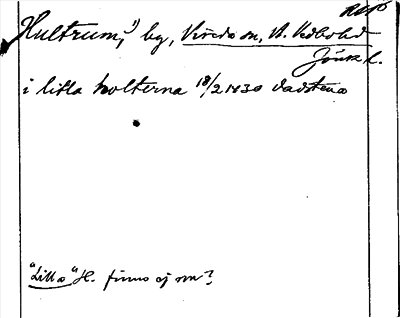 Hultrum,¹⁾ by, Vireda sn, N. Vedbo hd
Jönk. l.
i litla holterna 18/2 1430 Vadstena
"Lilla" H. finns ej nu?